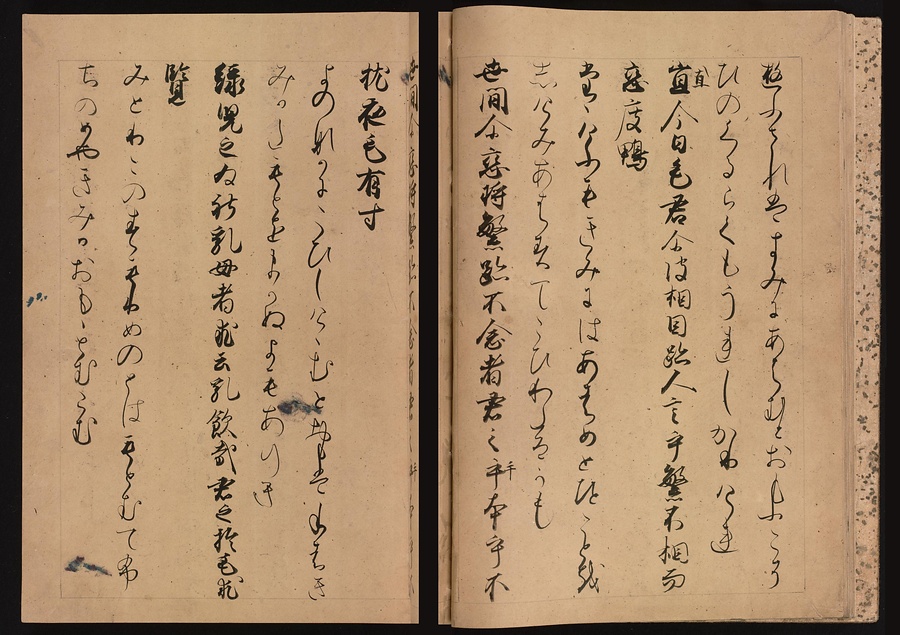 ゆふされはきみにあはむとおもふこそ
ひのくるらくもうれしかりけれ
直今日毛君尓波相目跡人言乎繁不相而
直
恋度鴨
たゝけふもきみにはあはめとひことを
しけみあはすてこひわたるかも
世間尓恋将繁跡不念者君之手本乎不
手
枕夜毛有寸
よのなかにこひしけむとおもはねはき
みかたもとをまかぬよもありき
緑児之為社乳母者求云乳飲哉君之於毛求
覧
みとりこのためめのとはもとむてふ
ちのめやきみかおもゝとむらむ